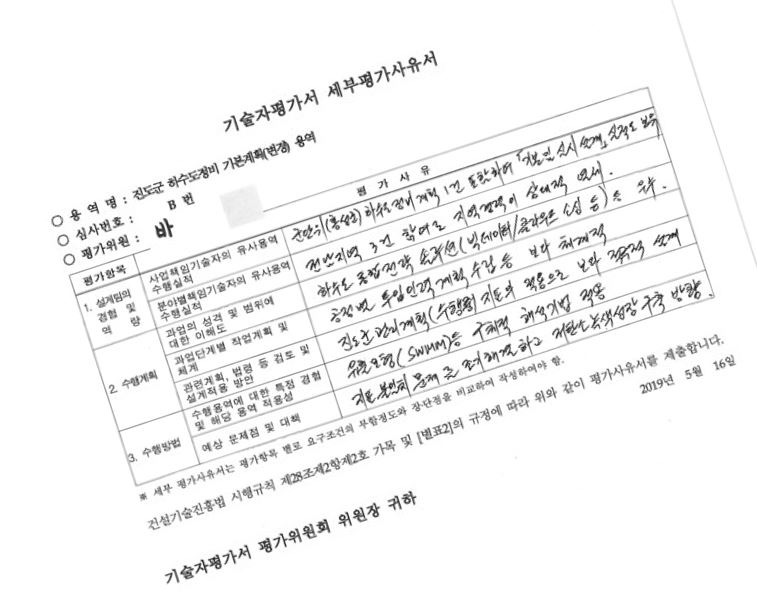 기술자평가서 세부평가사유서
○ 용 역 명 : 진도군 하수도정비 기본계획(변경) 용역
○ 심사번호 : B 번
○ 평가위원 : 바
평가항목
평 가 사 유
1. 설계팀의 경험 및 역 량
사업책임기술자의 유사용역 수행실적
군단위(홍성군) 하수도정비계획 1건 포함하여 기본및실시설계 실적도 보유
분야별책임기술자의 유사용역 수행실적
전남지역 3건 참여로 지역경험이 상대적 우세.
2. 수행계획
과업의 성격 및 범위에 대한 이해도
하수도 통합전략 (빅데이터/클라우드 등) 등 우수.
과업단계별 작업계획 및 체계
공정별 투입인력계획 수립 등 보다 체계적
관련계획, 법령 등 검토 및 설계적용 방안
진도군 관리계획(수행중) 지도의 적용으로 보다 적극적 설계
3. 수행방법
수행용역에 대한 특정 경험 및 해당 용역 적용성
유출모형(SWMM)등 구체적 해석기법 적용
예상 문제점 및 대책
문제를 해결하고 저탄소녹색성장 구축 방향.
※ 세부 평가사유서는 평가항목 별로 요구조건의 부합정도와 장단점을 비교하여 작성하여야 함.
건설기술진흥법 시행규칙 제28조제2항제2호 가목 및 [별표2]의 규정에 따라 위와 같이 평가사유서를 제출합니다.
2019년 5월 16일
기술자평가서 평가위원회 위원장 귀하